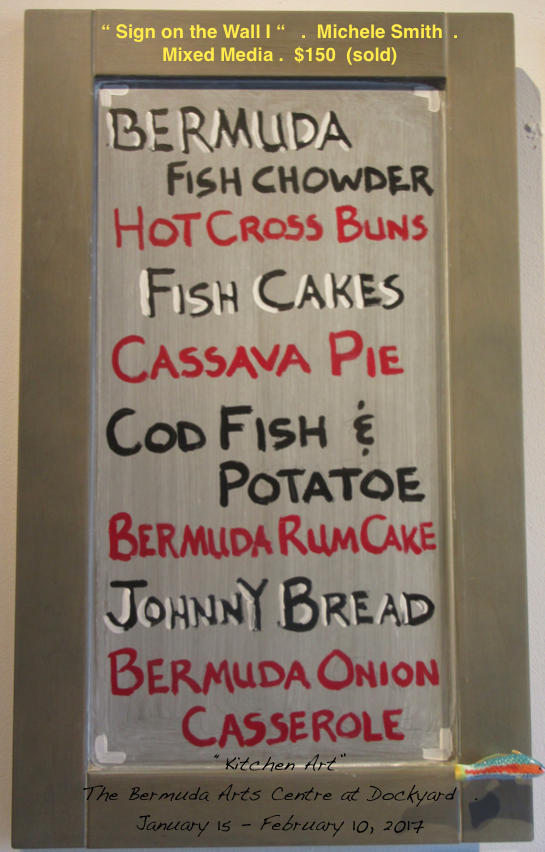 “ Sign on the Wall I “  .  Michele Smith  .
Mixed Media .  $150  (sold)
BERMUDA
FISH CHOWDER
HOT CROSS BUNS
FISH CAKES
CASSAVA PIE
COD FISH &
POTATOE
BERMUDA RUM CAKE
JOHNNY BREAD
BERMUDA ONION
CASSEROLE
"Kitchen Art"
The Bermuda Arts Centre at Dockyard .
January 15 - February 10, 2017